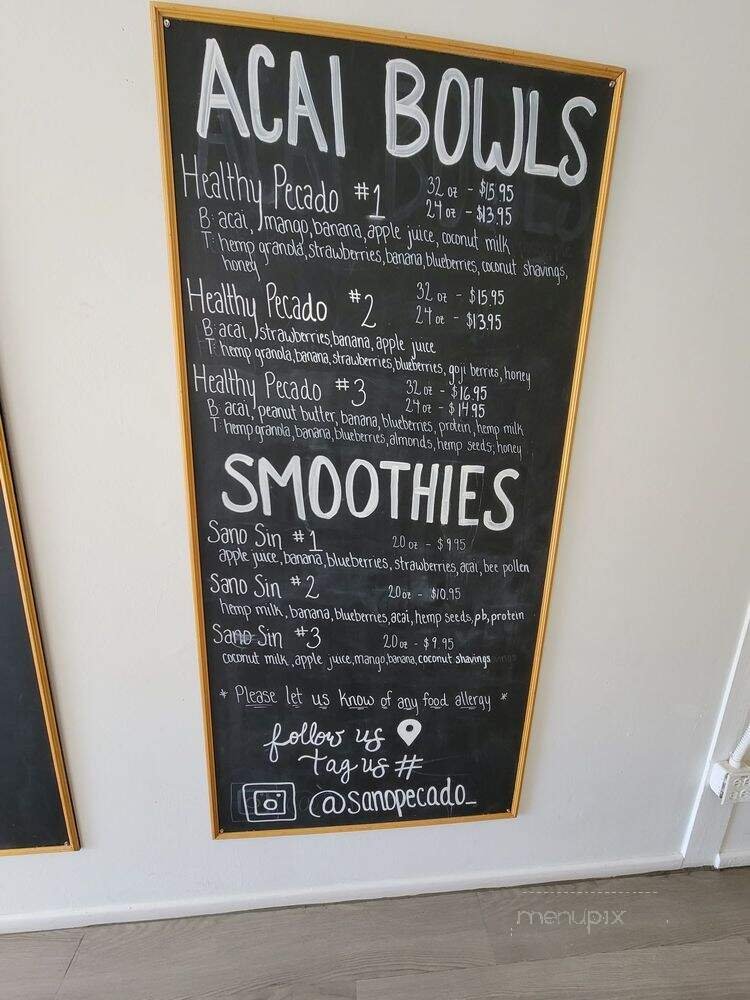 ACAI BOWLS
Healthy Pecado #1 32 oz - $15.95
24 oz - $13.95
B: acai, mango, banana, apple juice, coconut milk
T: hemp granola, strawberries, banana, blueberries, coconut shavings,
honey
Healthy Pecado #2 32 oz - $15.95
24 oz - $13.95
B: acai, strawberries, banana, apple juice
T: hemp granola, banana, strawberries, blueberries, goji berries, honey
Healthy Pecado #3 32 oz - $16.95
24 oz - $14.95
B: acai, peanut butter, banana, blueberries, protein, hemp milk
T: hemp granola, banana, blueberries, almonds, hemp seeds, honey
SMOOTHIES
Sano Sin #1 20 oz - $9.95
apple juice, banana, blueberries, strawberries, acai, bee pollen
Sano Sin #2 20 oz - $10.95
hemp milk, banana, blueberries, acai, hemp seeds, pb, protein
Sano Sin #3 20 oz - $9.95
coconut milk, apple juice, mango, banana, coconut shavings
* Please let us know of any food allergy *
follow us
tag us #
@sanopecado_
menupix